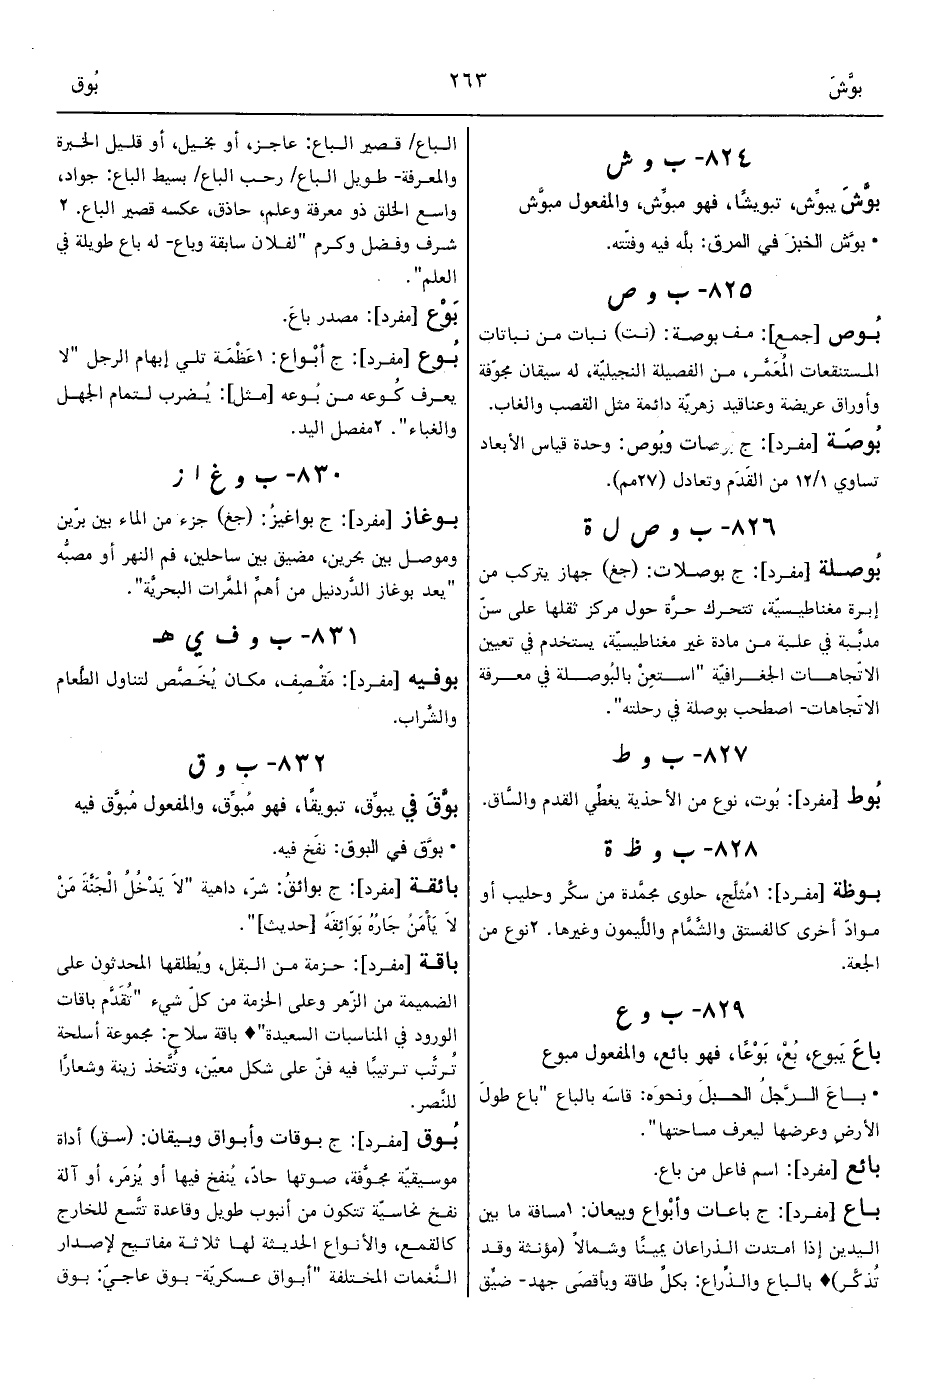 بوَّشَ
٢٦٣
بُوق
٨٢٤- ب و ش
بوَّشَ يبوِّش، تبويشًا، فهو مبوِّش، والمفعول مبوَّش
• بوَّش الخبزَ في المرق: بلَّه فيه وفتّته.
٨٢٥- ب و ص
بُوص [جمع]: مف بوصة: (نت) نبات من نباتات
المستنقعات المُعَمَّر، من الفصيلة النجيليّة، له سيقان مجوّفة
وأوراق عريضة وعناقيد زهريّة دائمة مثل القصب والغاب.
بُوصَة [مفرد]: ج بوصات وبُوص: وحدة قياس الأبعاد
تساوي ١٢/١ من القَدَم وتعادل (٢٧مم).
٨٢٦- ب و ص ل ة
بُوصلة [مفرد]: ج بوصلات: (جغ) جهاز يتركب من
إبرة مغناطيسيّة، تتحرك حرَّة حول مركز ثقلها على سنّ
مدبَّبة في علبة من مادة غير مغناطيسيّة، يستخدم في تعيين
الاتّجاهات الجغرافيّة "استعِنْ بالبُوصلة في معرفة
الاتّجاهات- اصطحب بوصلة في رحلته".
٨٢٧- ب و ط
بُوط [مفرد]: بُوت، نوع من الأحذية يغطِّي القدم والسَّاق.
٨٢٨- ب و ظ ة
بوظة [مفرد]: ١مُثلَّج، حلوى مجمَّدة من سكَّر وحليب أو
موادّ أخرى كالفستق والشَّمَّام واللَّيمون وغيرها. ٢نوع من
الجعة.
٨٢٩- ب و ع
باعَ يَبوع، بُعْ، بَوْعًا، فهو بائع، والمفعول مبوع
• باعَ الرَّجلُ الحبلَ ونحوَه: قاسَه بالباع "باع طولَ
الأرض وعرضها ليعرف مساحتها".
بائع [مفرد]: اسم فاعل من باع.
باع [مفرد]: ج باعات وأبْواع وبيعان: ١مسافة ما بين
اليدين إذا امتدت الذراعان يمينًا وشمالاً (مؤنثة وقد
تُذكَّر)♦ بالباع والذِّراع: بكلِّ طاقة وبأقصَى جهد- ضيِّق
الباع/ قصير الباع: عاجز، أو بخيل، أو قليل الخبرة
والمعرفة- طويل الباع/ رحب الباع/ بسيط الباع: جواد،
واسع الخلق ذو معرفة وعلم، حاذق، عكسه قصير الباع. ٢
شرف وفضل وكرم "لفلان سابقة وباع- له باع طويلة في
العلم".
بَوْع [مفرد]: مصدر باعَ.
بُوع [مفرد]: ج أبْواع: ١عَظْمَة تلي إبهام الرجل "لا
يعرف كُوعه من بُوعه [مثل]: يُضرب لتمام الجهل
والغباء". ٢مفصل اليد.
٨٣٠- ب و غ ا ز
بوغاز [مفرد]: ج بواغيزُ: (جغ) جزء من الماء بين برّين
وموصل بين بحرين، مضيق بين ساحلين، فم النهر أو مصبُّه
"يعد بوغاز الدَّردنيل من أهمِّ الممَّرات البحريَّة".
٨٣١- ب و ف ي هـ
بوفيه [مفرد]: مَقْصِف، مكان يُخَصَّص لتناول الطَّعام
والشَّراب.
٨٣٢- ب و ق
بوَّقَ في يبوِّق، تبويقًا، فهو مُبوِّق، والمفعول مُبوَّق فيه
• بوَّق في البوق: نفَخ فيه.
بائقة [مفرد]: ج بوائقُ: شرّ، داهية "لاَ يَدْخُلُ الْجَنَّةَ مَنْ
لاَ يَأْمَنُ جَارُهُ بَوَائِقَهُ [حديث]".
باقة [مفرد]: حزمة من البقل، ويُطلقها المحدثون على
الضميمة من الزّهر وعلى الحزمة من كلّ شيء "تُقدَّم باقات
الورود في المناسبات السعيدة"♦ باقة سلاح: مجموعة أسلحة
تُرتَّب ترتيبًا فيه فنّ على شكل معيّن، وتُتَّخذ زينة وشعارًا
للنَّصر.
بُوق [مفرد]: ج بوقات وأبواق وبيقان: (سق) أداة
موسيقيّة مجوَّفة، صوتها حادّ، يُنفخ فيها أو يُزمَر، أو آلة
نفخ نحاسيّة تتكون من أنبوب طويل وقاعدة تتَّسع للخارج
كالقمع، والأنواع الحديثة لها ثلاثة مفاتيح لإصدار
النَّغمات المختلفة "أبواق عسكريّة- بوق عاجيّ: بوق